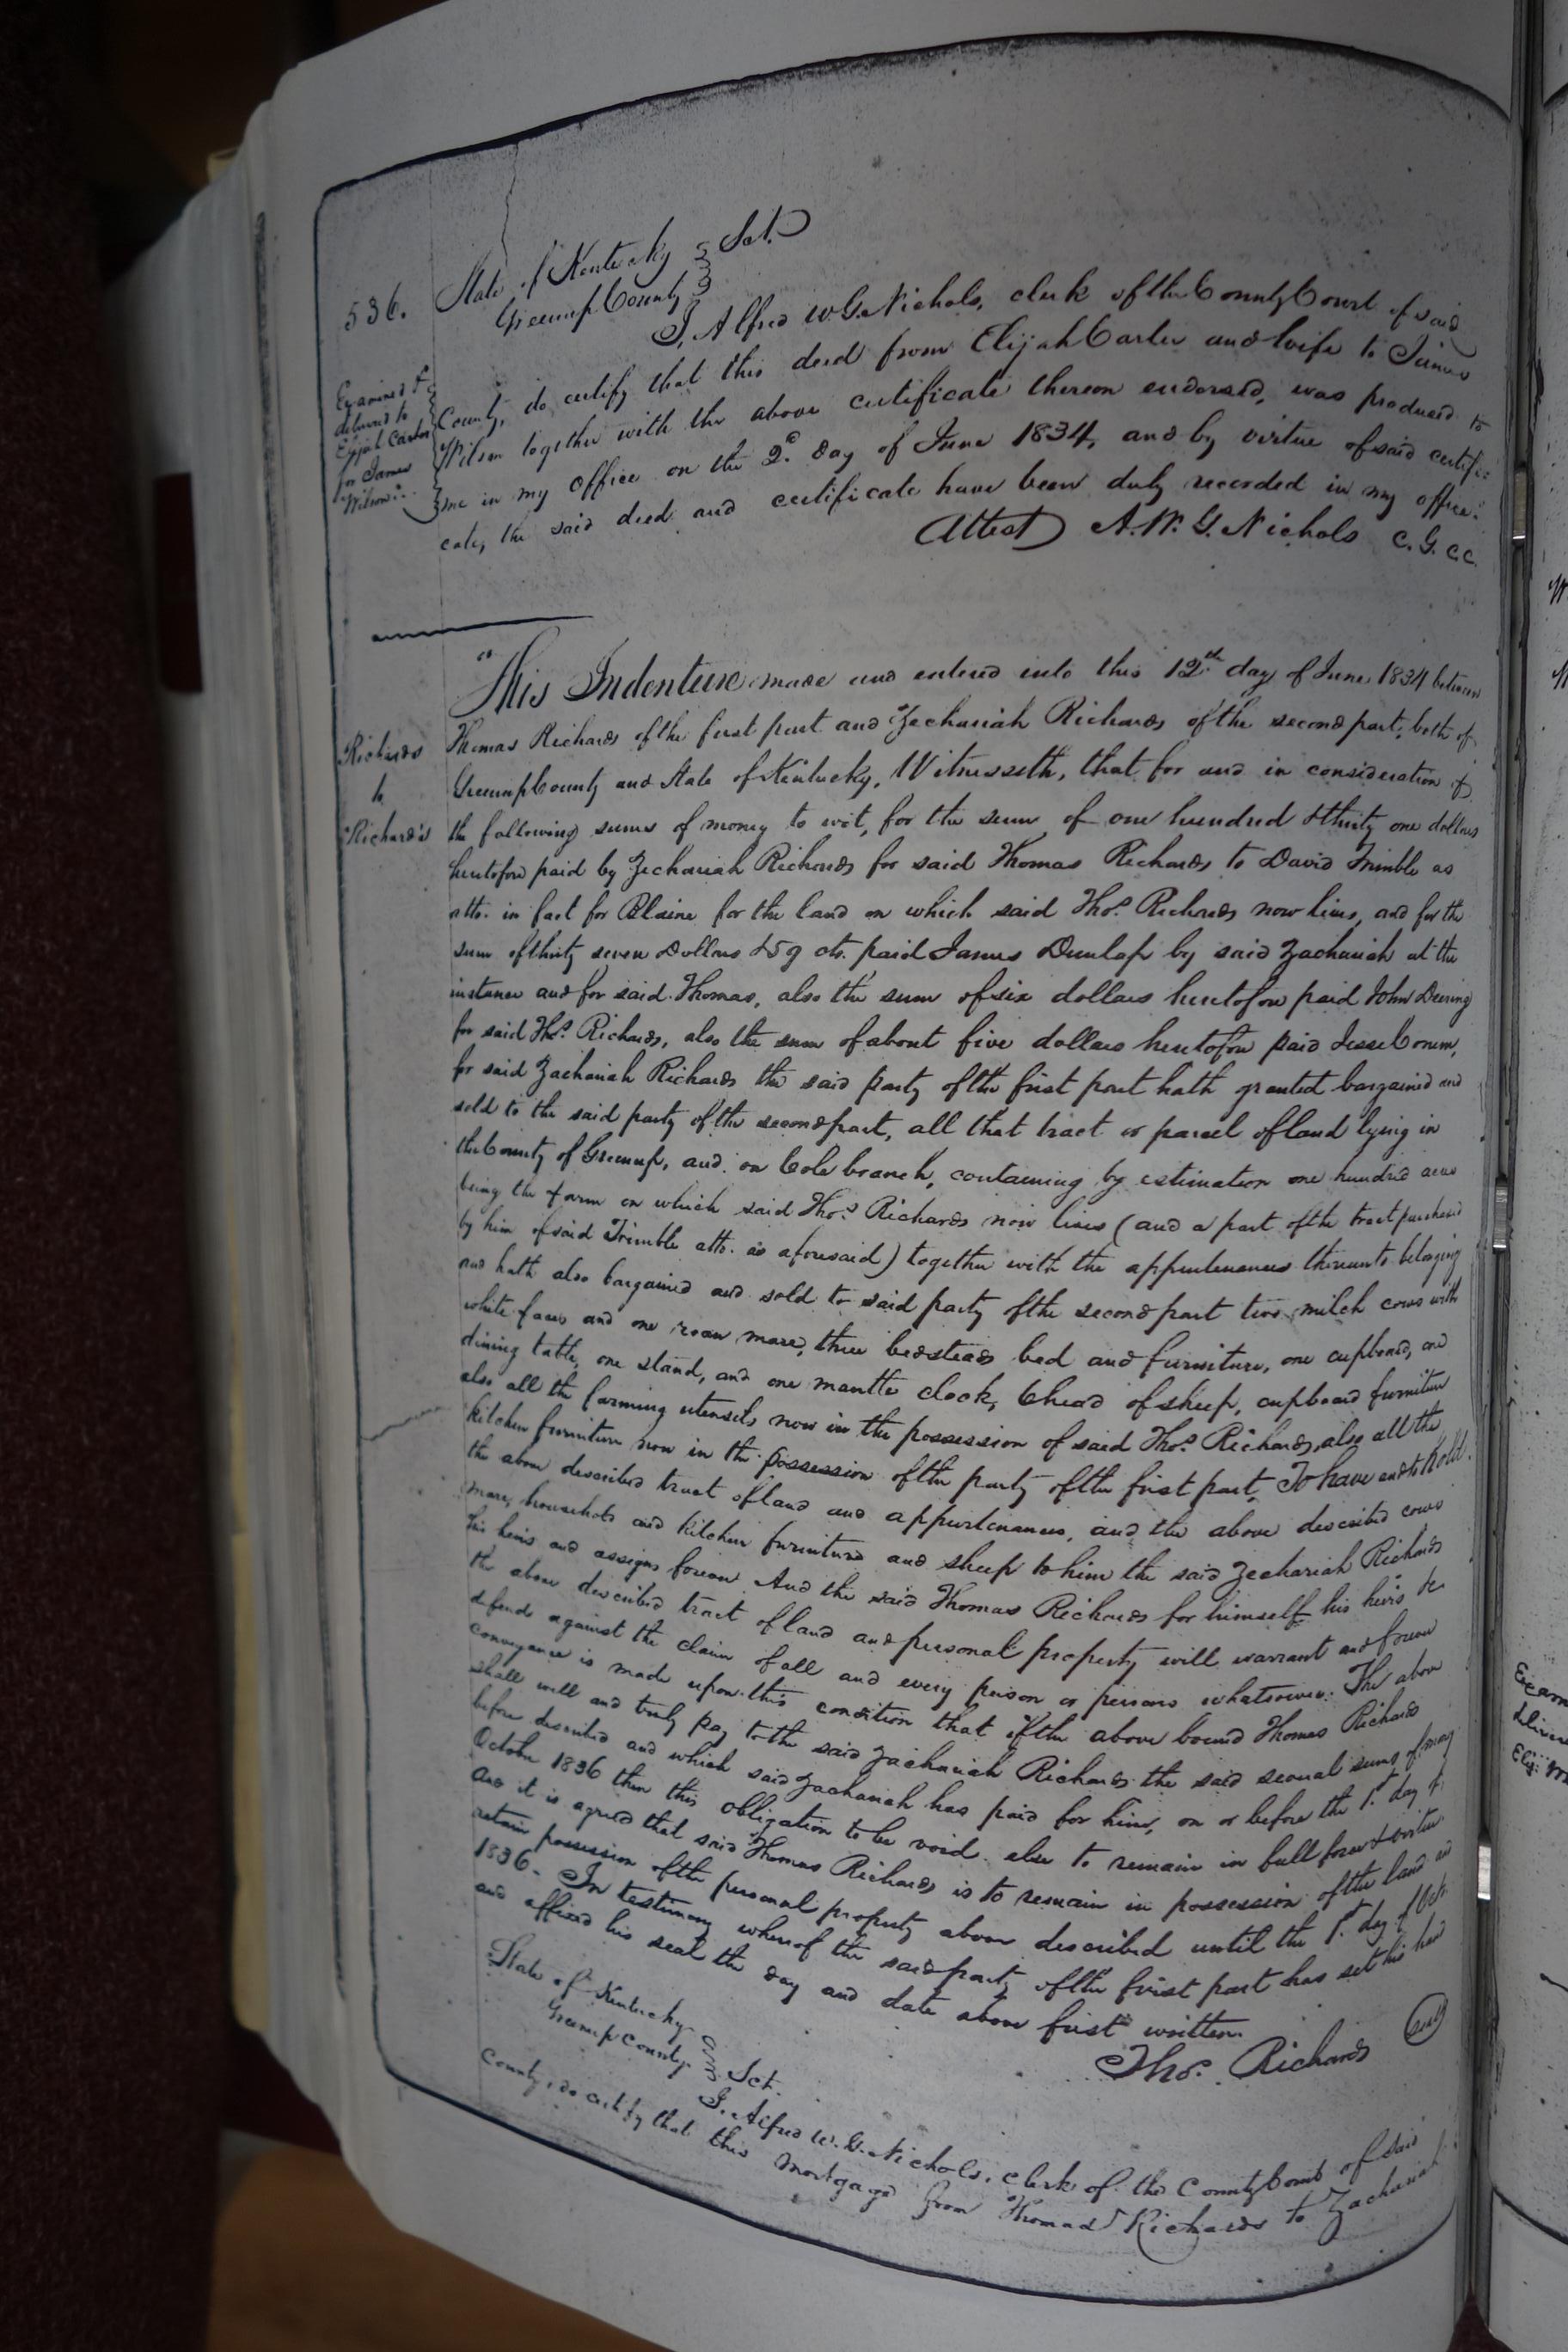 536.
State of Kentucky } Sct.
Greenup County }
I, Alfred W. G. Nichols, clerk of the County Court of said
County, do certify that this deed from Elijah Carter and wife to James
Wilson together with the above certificate thereon endorsed, was produced to
me in my office on the 2d. day of June 1834, and by virtue of said certifi-
cate, the said deed and certificate have been duly recorded in my office.
Attest A. W. G. Nichols C. G. C. C.
Examined &
delivered to
Elijah Carter
for James
Wilson
"This Indenture made and entered into this 12th day of June 1834 between
Richards
to
Richards
Thomas Richards of the first part and Zechariah Richards of the second part, both of
Greenup County and State of Kentucky, Witnesseth, that for and in consideration of
the following sums of money to wit, for the sum of one hundred & thirty one dollars
heretofore paid by Zechariah Richards for said Thomas Richards to David Trimble as
atto. in fact for Blaine for the land on which said Thos. Richards now lives, and for the
sum of thirty seven Dollars & 59 cts. paid James Dunlap by said Zachariah at the
instance and for said Thomas, also the sum of six dollars heretofore paid John Deering
for said Thos. Richards, also the sum of about five dollars heretofore paid Jesse Corum,
for said Zachariah Richards the said party of the first part hath granted bargained and
sold to the said party of the second part, all that tract or parcel of land lying in
the County of Greenup, and on Cole branch, containing by estimation one hundred acres
being the farm on which said Thos. Richards now lives (and a part of the tract purchased
by him of said Trimble atto. as aforesaid) together with the appurtenances thereunto belonging
and hath also bargained and sold to said party of the second part two milch cows with
white faces and one roan mare, three bedsteads bed and furniture, one cupboard, one
dining table, one stand, and one mantle clock, 6 head of sheep, cupboard furniture
also all the farming utensels now in the possession of said Thos. Richards, also all the
kitchen furniture now in the possession of the party of the first part, To have and to hold.
the above described tract of land and appurtenances, and the above described cows
mare, household and kitchen furniture and sheep to him the said Zechariah Richards
his heirs and assigns forever And the said Thomas Richards for himself his heirs &c
the above described tract of land and personal property will warrant and forever
defend against the claim of all and every person or persons whatsoever. The above
conveyance is made upon this condition that if the above bound Thomas Richards
shall well and truly pay to the said Zachariah Richards the said several sums of money
before described and which said Zachariah has paid for him, on or before the 1st. day of
October 1836 then this obligation to be void. else to remain in full force & virtue
And it is agreed that said Thomas Richards is to remain in possession of the land and
retain possession of the personal property above described until the 1st. day of Octr.
1836 - In testimony whereof the said party of the first part has set his hand
and affixed his seal the day and date above first written.
Thos. Richards (seal)
State of Kentucky } Sct.
Greenup County }
I, Alfred W. G. Nichols, clerk of the County Court of said
County, do certify that this mortgage from Thomas Richards to Zachariah